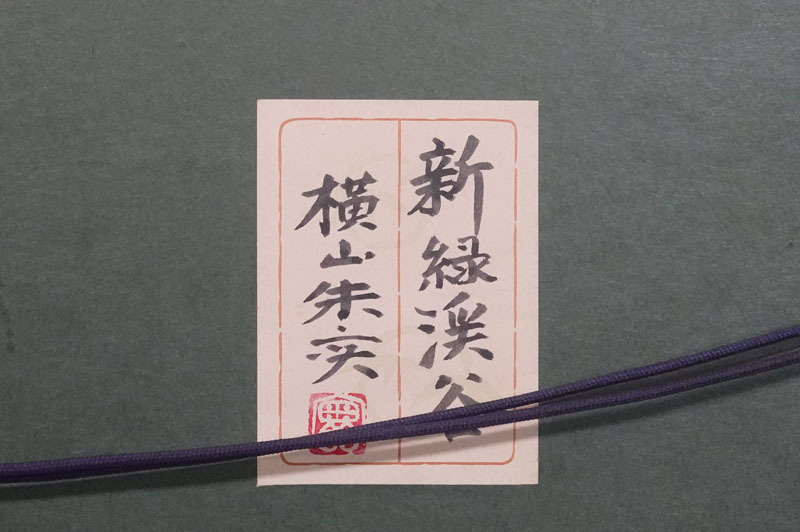 新緑渓谷
横山朱実